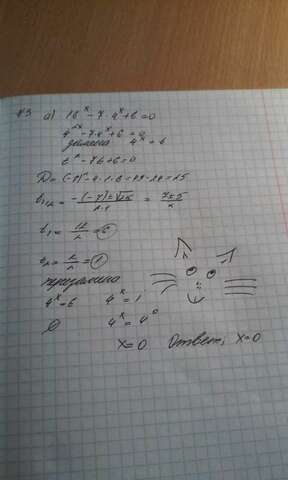 №3 а) 16^x - 7·4^x + 6 = 0
4^2x - 7·4^x + 6 = 0
замена 4^x = t
t² - 7t + 6 = 0
D = (-7)² - 4·1·6 = 49 - 24 = 25
t1,2 = -(-7)±√25 / 2·1 = 7±5 / 2
t1 = 12/2 = 6
t2 = 2/2 = 1
перезамена
4^x = 6 4^x = 1
∅ 4^x = 4^0
x = 0 Ответ: x = 0